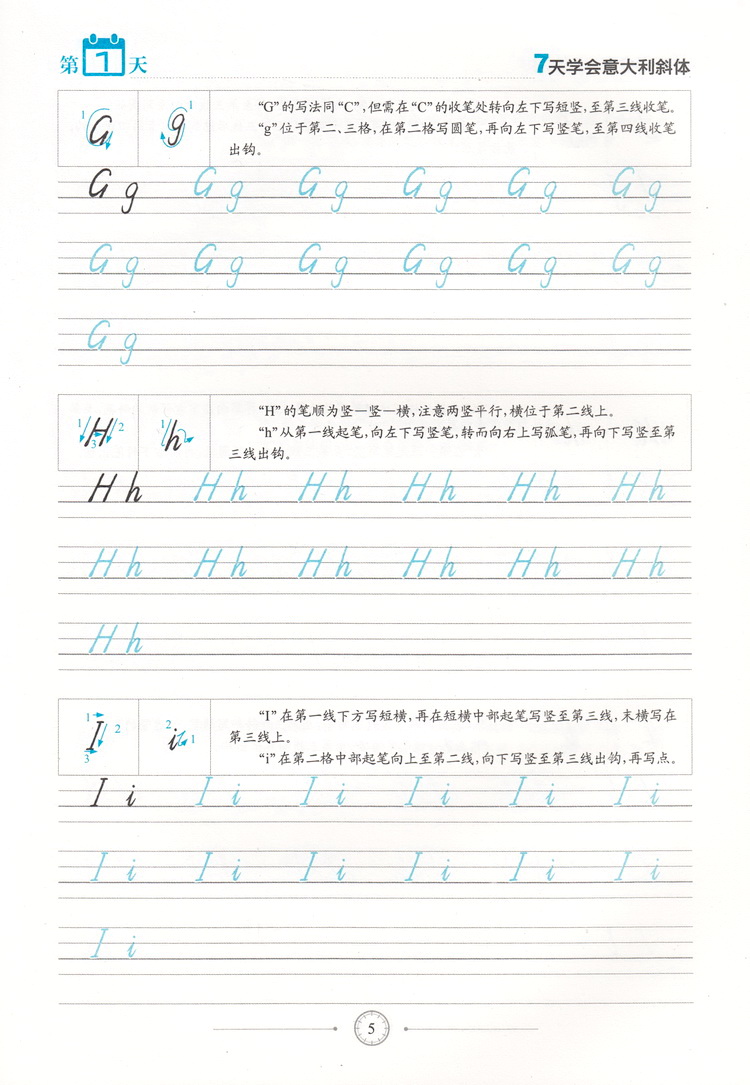 第1天
7天学会意大利斜体
1 G
1 g
“G”的写法同“C”，但需在“C”的收笔处转向左下写短竖，至第三线收笔。
“g”位于第二、三格，在第二格写圆笔，再向左下写竖笔，至第四线收笔
出钩。
G g G g G g G g G g G g
G g G g G g G g G g G g
G g
1 H 2 3
1 h
“H”的笔顺为竖—竖—横，注意两竖平行，横位于第二线上。
“h”从第一线起笔，向左下写竖笔，转而向右上写弧笔，再向下写竖至第
三线出钩。
H h H h H h H h H h H h
H h H h H h H h H h H h
H h
1 I 2 3
2 i 1
“I”在第一线下方写短横，再在短横中部起笔写竖至第三线，末横写在
第三线上。
“i”在第二格中部起笔向上至第二线，向下写竖至第三线出钩，再写点。
I i I i I i I i I i I i
I i I i I i I i I i I i
I i
5